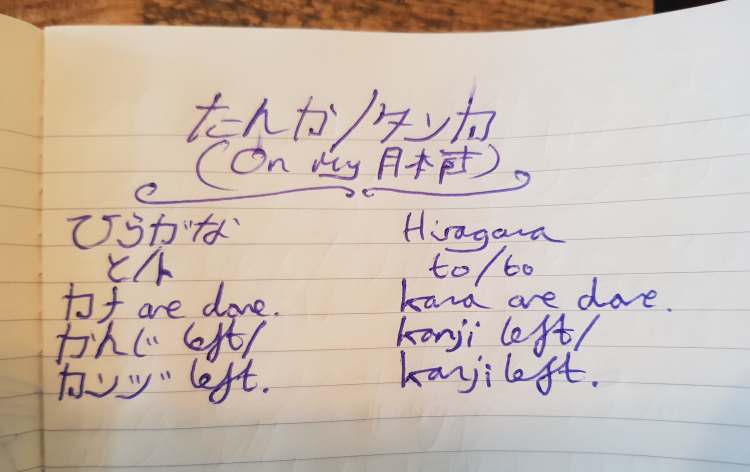 たんか/タンカ
(On My 日本語)
ひらがな
と/ト
カナ are done.
かんじ left/
カンジ left.
Hiragana
to/to
kana are done.
kanji left/
kanji left.